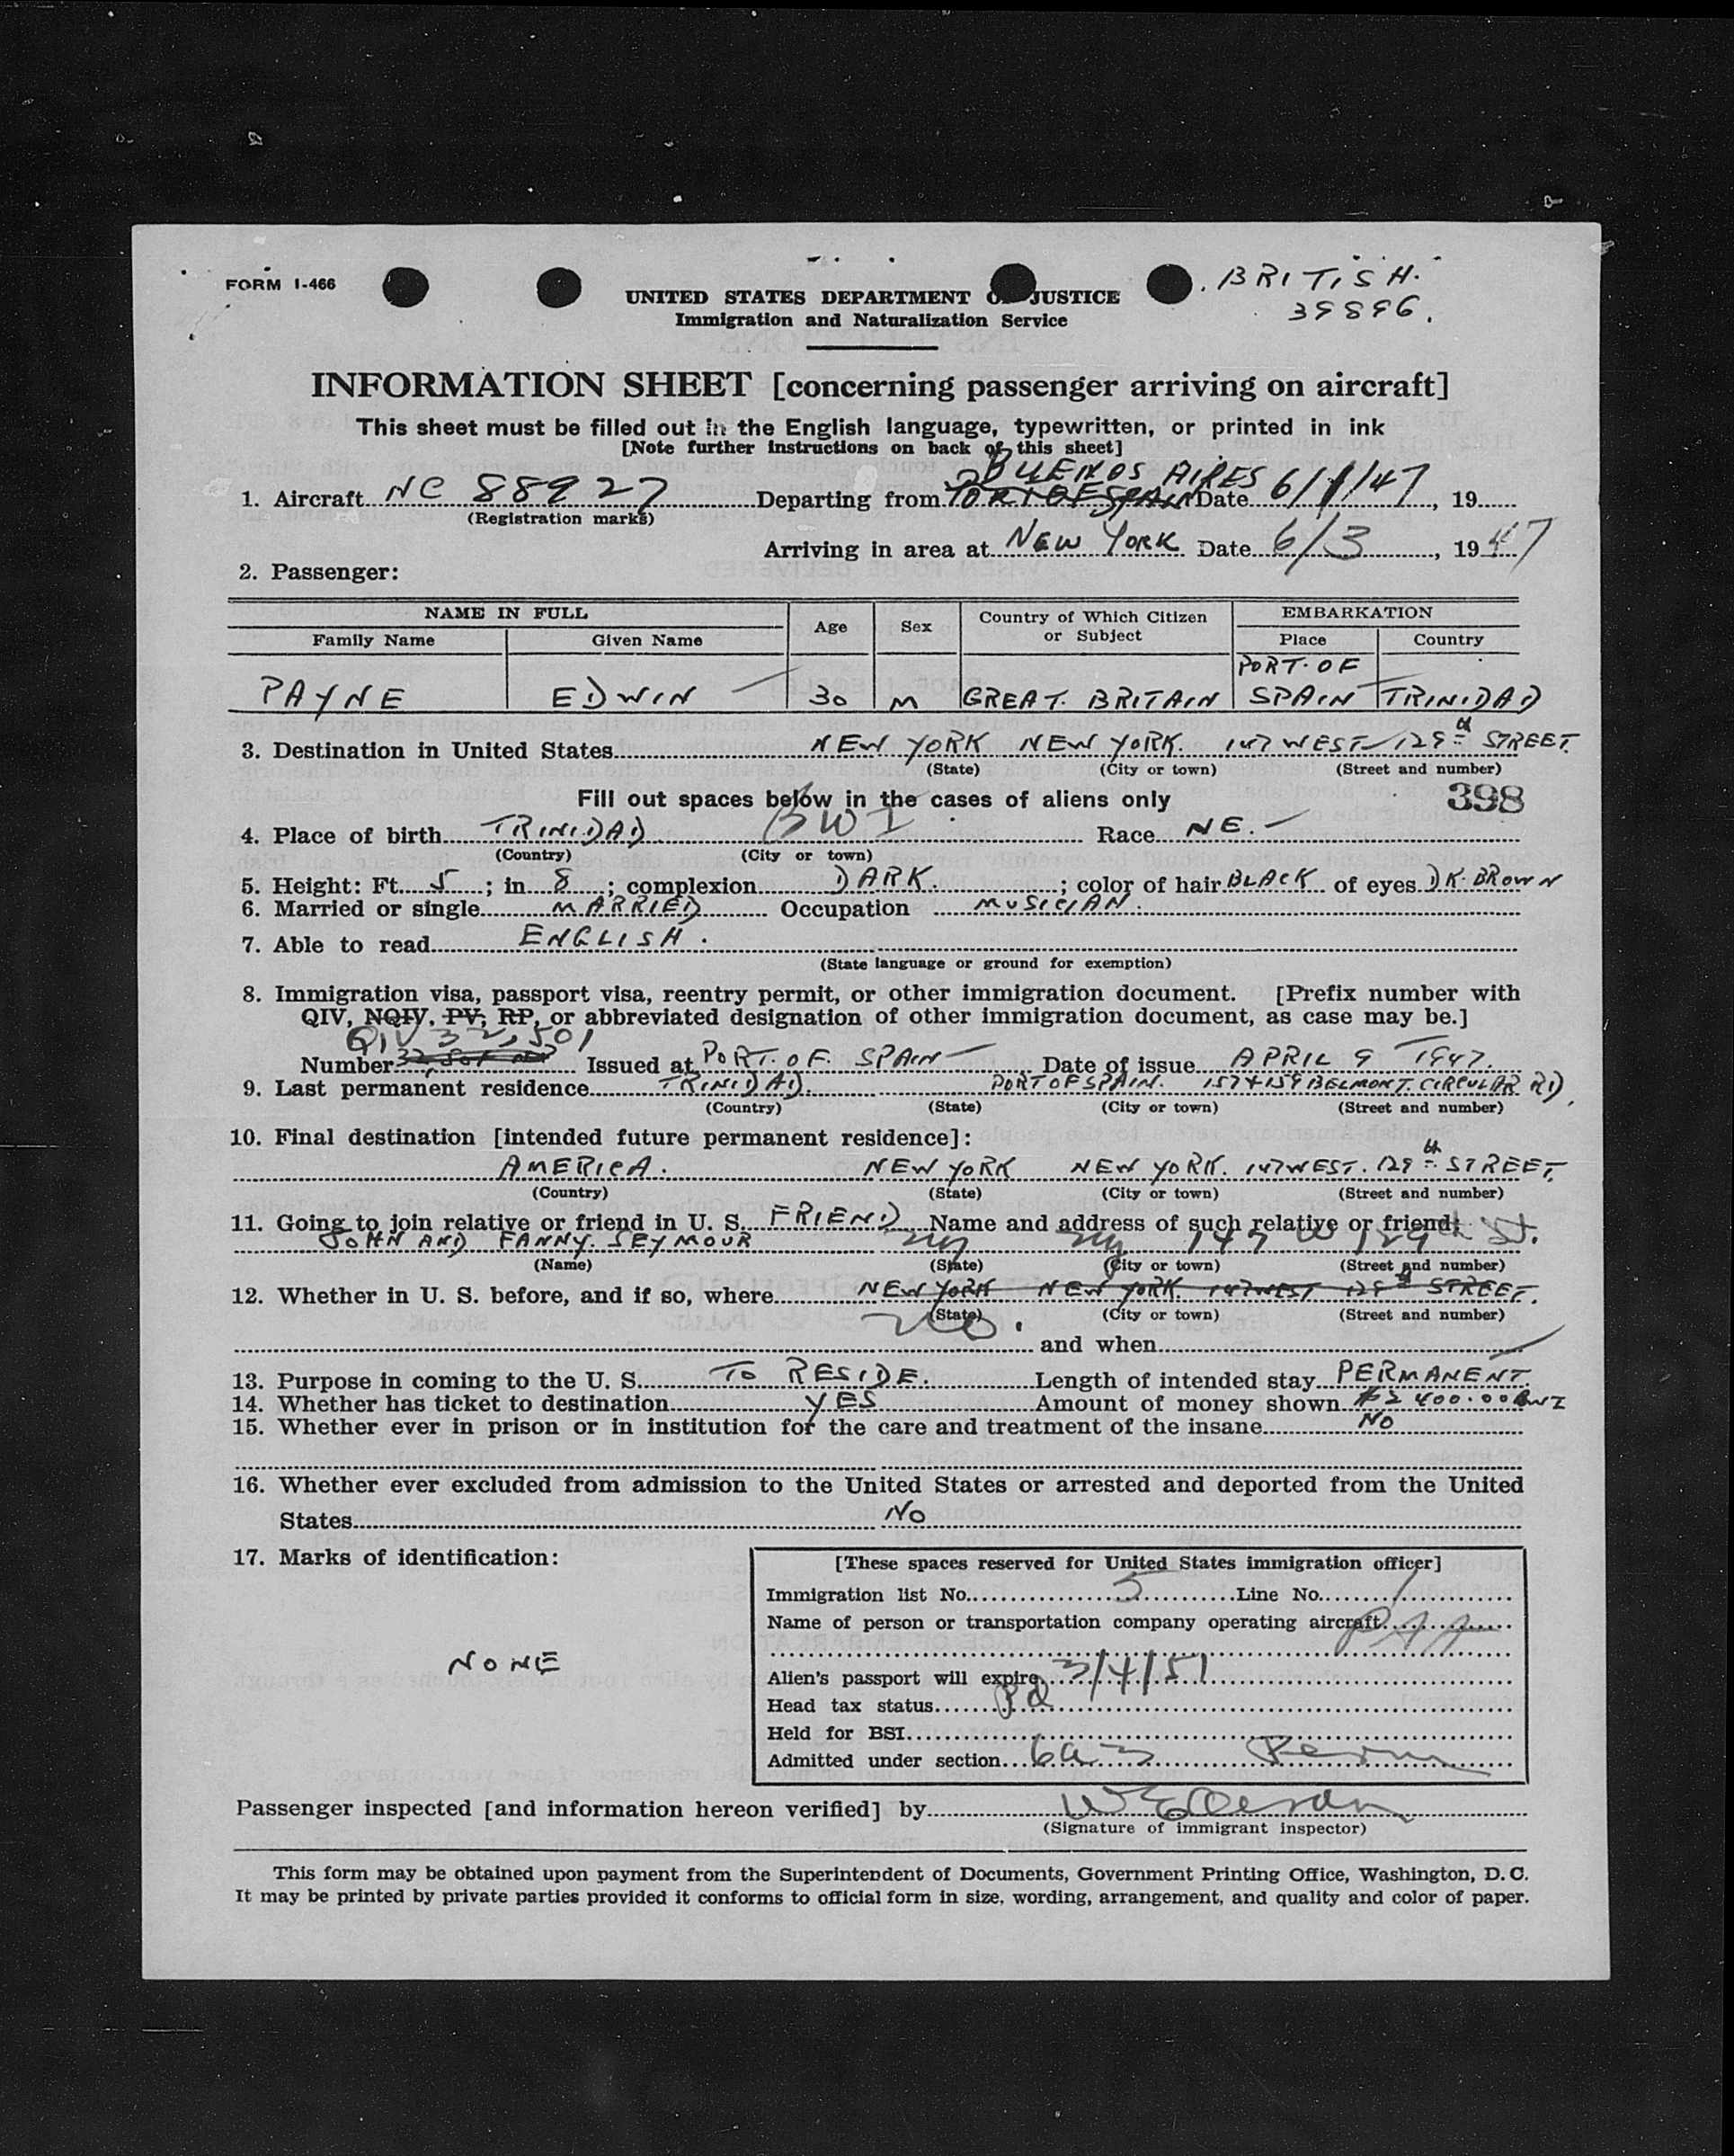 FORM I-466
BRITISH.
UNITED STATES DEPARTMENT OF JUSTICE
39896.
Immigration and Naturalization Service
INFORMATION SHEET [concerning passenger arriving on aircraft]
This sheet must be filled out in the English language, typewritten, or printed in ink
[Note further instructions on back of this sheet]
BUENOS AIRES
1. Aircraft NC 88927 Departing from PORT OF SPAIN Date 6/1/47, 19
(Registration marks)
Arriving in area at NEW YORK Date 6/3, 1947
2. Passenger:
NAME IN FULL Age Sex Country of Which Citizen or Subject EMBARKATION
Family Name Given Name Place Country
PORT. OF
PAYNE EDWIN 30 M GREAT. BRITAIN SPAIN TRINIDAD
3. Destination in United States NEW YORK NEW YORK. 147 WEST 129th STREET.
(State) (City or town) (Street and number)
Fill out spaces below in the cases of aliens only 398
4. Place of birth TRINIDAD BWI Race NE.
(Country) (City or town)
5. Height: Ft. 5; in 8; complexion DARK.; color of hair BLACK of eyes DK. BROWN
6. Married or single MARRIED Occupation MUSICIAN.
7. Able to read ENGLISH.
(State language or ground for exemption)
8. Immigration visa, passport visa, reentry permit, or other immigration document. [Prefix number with
QIV, NQIV, PV, RP, or abbreviated designation of other immigration document, as case may be.]
QIV 32,501
Number 32,501 Issued at PORT. OF. SPAIN Date of issue APRIL 9 1947.
9. Last permanent residence TRINIDAD. PORT OF SPAIN. 157 & 159 BELMONT. CIRCULAR RD.
(Country) (State) (City or town) (Street and number)
10. Final destination [intended future permanent residence]:
AMERICA. NEW YORK NEW YORK. 147 WEST. 129th STREET.
(Country) (State) (City or town) (Street and number)
11. Going to join relative or friend in U. S. FRIEND Name and address of such relative or friend:
JOHN AND FANNY. SEYMOUR NY NY 147 W 129th St.
(Name) (State) (City or town) (Street and number)
12. Whether in U. S. before, and if so, where NEW YORK NEW YORK. 147 WEST 129th STREET.
(State) (City or town) (Street and number)
No. and when
13. Purpose in coming to the U. S. TO RESIDE. Length of intended stay PERMANENT.
14. Whether has ticket to destination YES Amount of money shown $2400.00 BWI
15. Whether ever in prison or in institution for the care and treatment of the insane NO
16. Whether ever excluded from admission to the United States or arrested and deported from the United
States NO
17. Marks of identification:
NONE
[These spaces reserved for United States immigration officer]
Immigration list No. 5 Line No. 1
Name of person or transportation company operating aircraft PAA
Alien's passport will expire 3/4/51
Head tax status Pd
Held for BSI
Admitted under section 6a3 Perm
Passenger inspected [and information hereon verified] by
(Signature of immigrant inspector)
This form may be obtained upon payment from the Superintendent of Documents, Government Printing Office, Washington, D. C.
It may be printed by private parties provided it conforms to official form in size, wording, arrangement, and quality and color of paper.